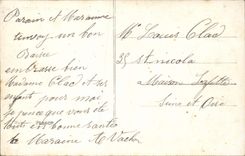 Parain et Maraine
envoy un bon
Baise
embrasse bien
Madame Clad et ses
enfant pour moi
je pense que vous
toute est bonne santé
la Maraine
Mr Louis Clad
35 St nicola
Maison
Seine et Oise